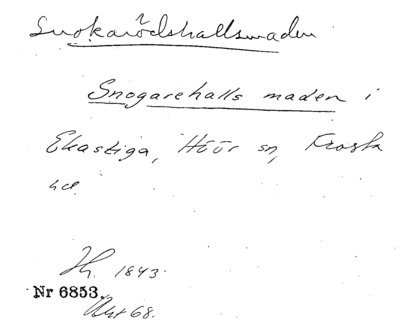 Snokarödshallsmaden
Snogarehalls maden i
Ekastiga, Höör sn, Frosta
hd.
Th. 1843.
Nr 6853.
Akt 68.